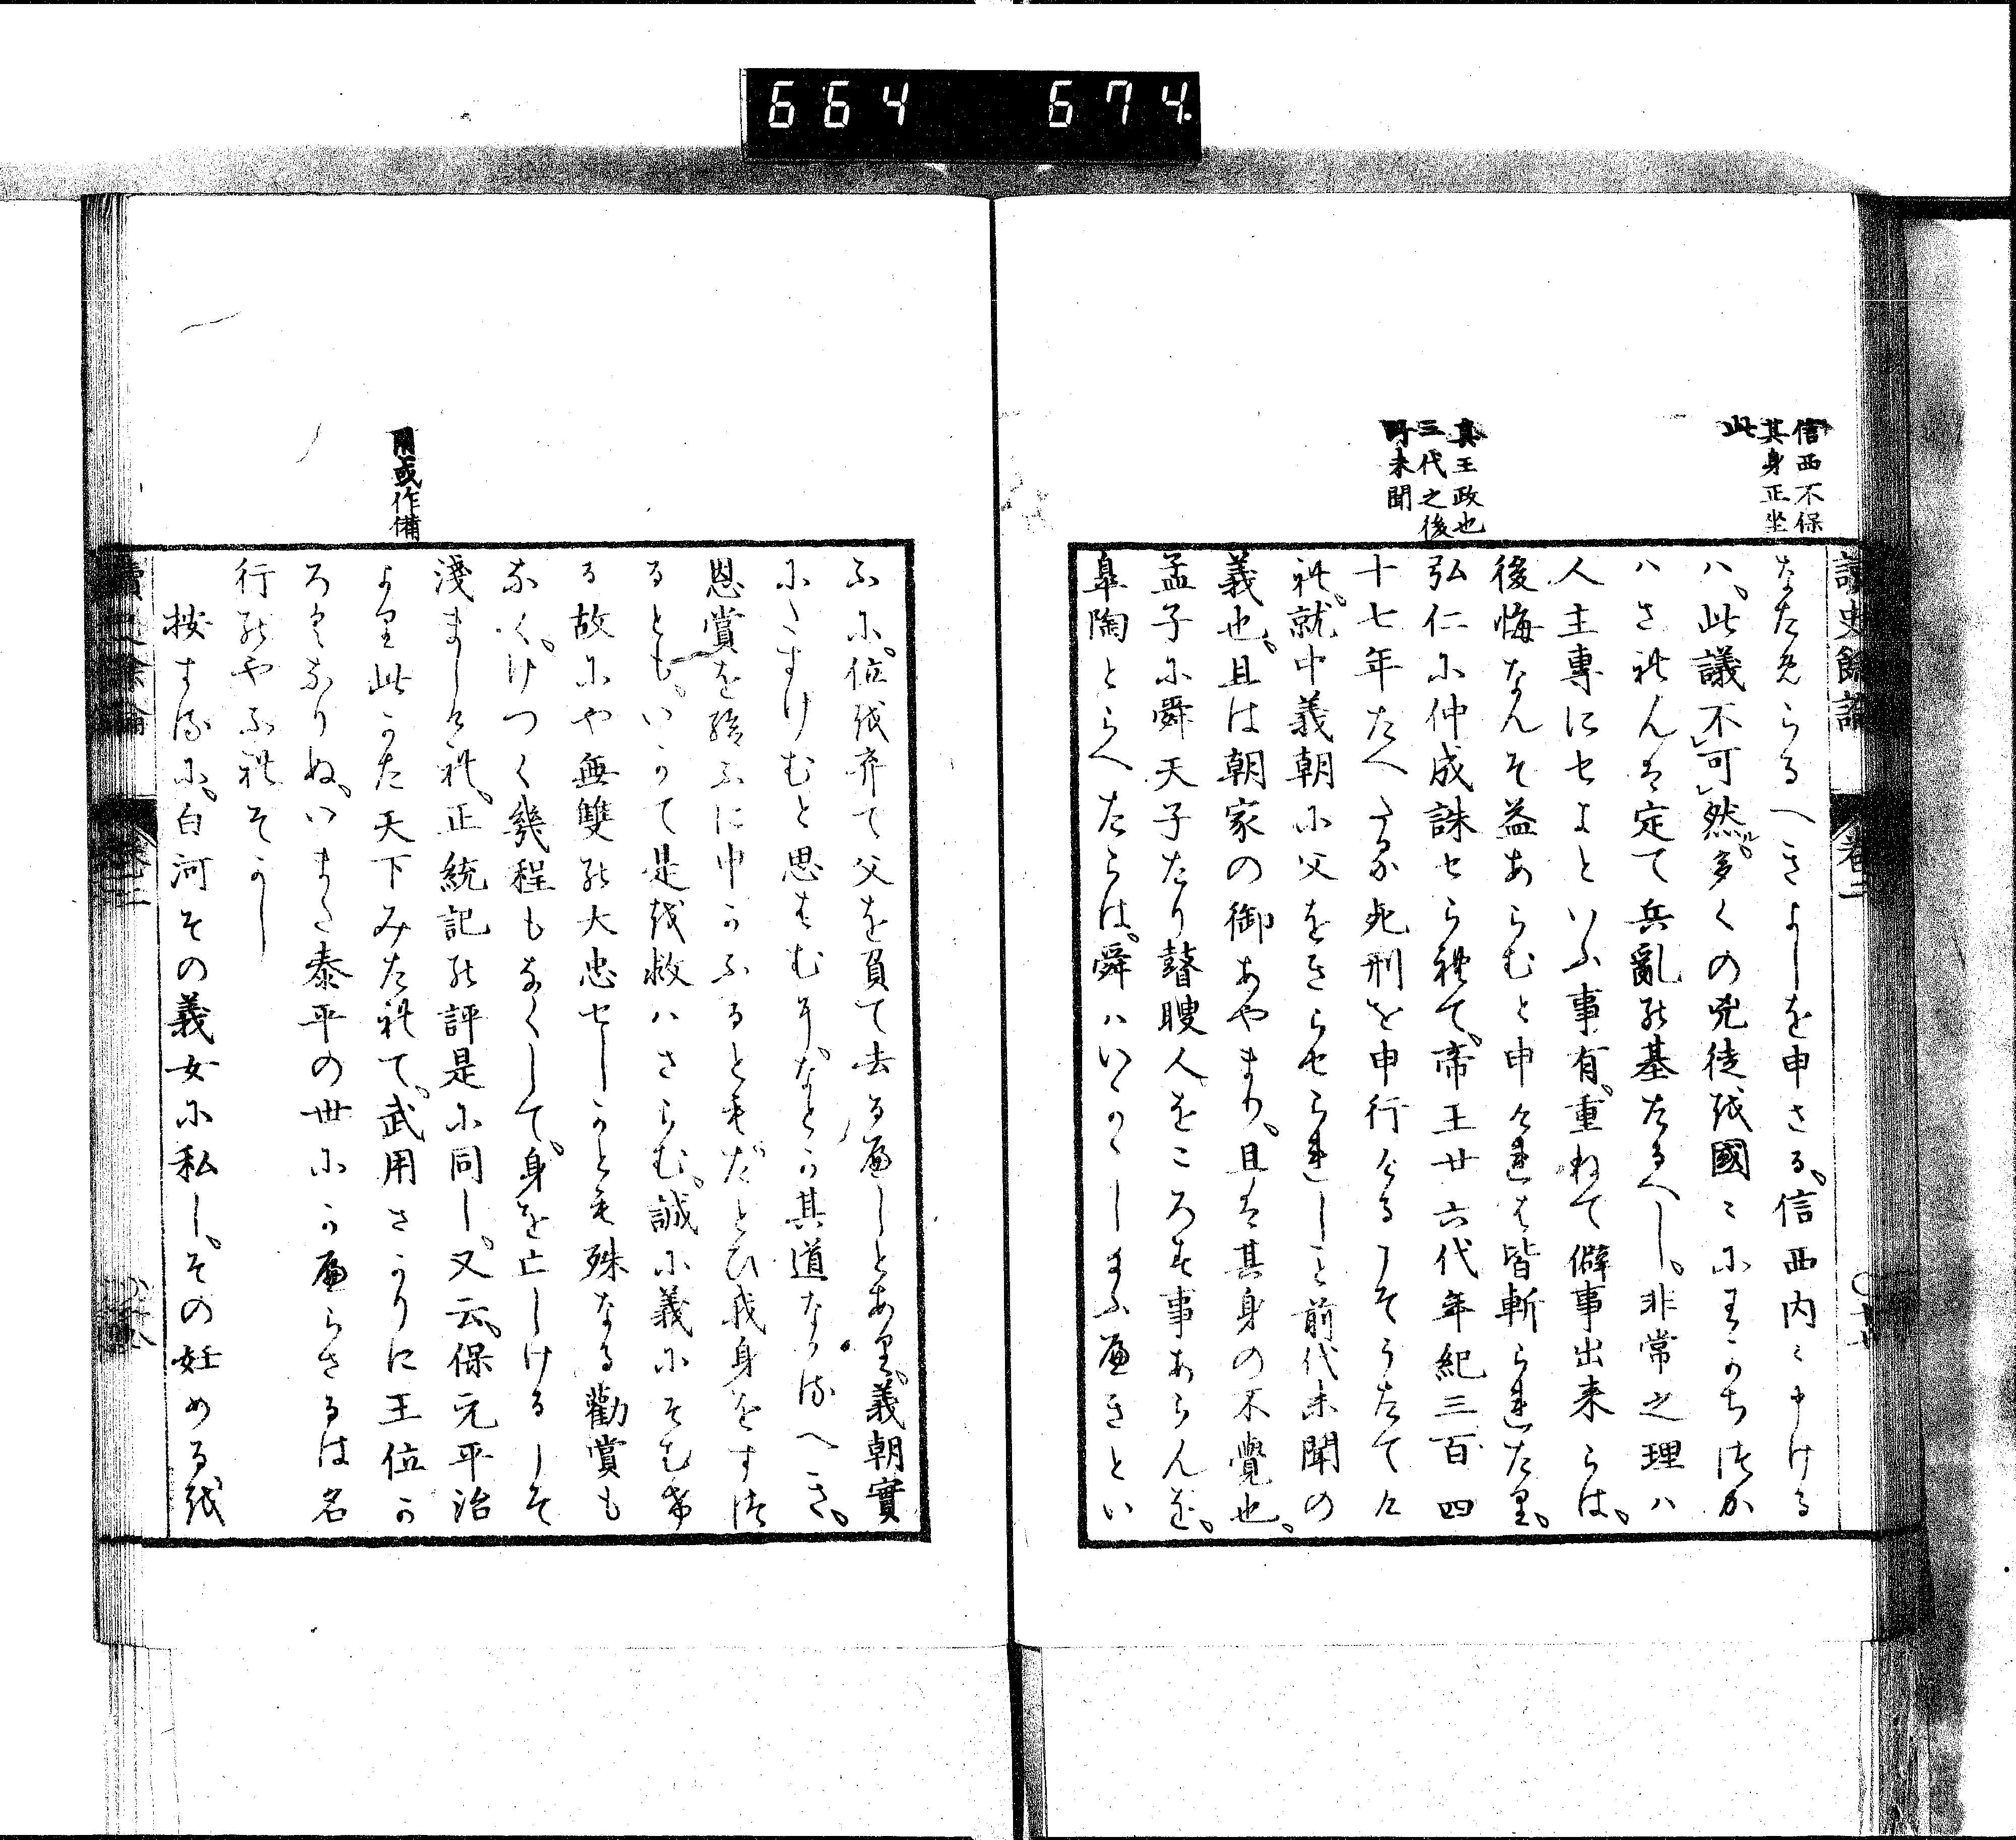 664 674
信西不保
其身正坐
此
真王政也
三代之後
所未聞
讀史餘論 卷二
なためらるへきよしを申さる。信西内々申ける
ハ、此議不可然。多くの兇徒を國々にわかちつか
ハされんは定て兵亂の基たるへし。非常之理ハ
人主專にせよといふ事有。重ねて僻事出来らは。
後悔なんそ益あらむと申けれは皆斬られたり。
弘仁に仲成誅せられて。帝王廿六代年紀三百四
十七年たへたる死刑を申行けるこそうたてけ
れ。就中義朝に父をきらせられしこと前代未聞の
義也。且は朝家の御あやまり、且は其身の不覺也。
孟子に舜天子たり瞽瞍人をころす事あらんを。
皐陶とらへたらは。舜ハいかゝしまふへきとい
用或作備
ふに。位を弃て父を負て去るへしとあり。義朝實
にたすけむと思はむに。なとか其道なかるへき。
恩賞を給ふに申かふるとも。たとひ我身をすつ
るとも。いかて是を救ハさらむ。誠に義にそむけ
る故にや無雙の大忠せしかとも殊なる勸賞も
なく。けつく幾程もなくして。身を亡しけるこそ
淺ましけれ。正統記の評是に同し。又云。保元平治
より此かた天下みたれて。武用さかりに王位か
ろくなりぬ。いまた泰平の世にかへらさるは名
行のやふれそかし
按するに。白河その義女に私し。その妊めるを
讀史餘論 卷二